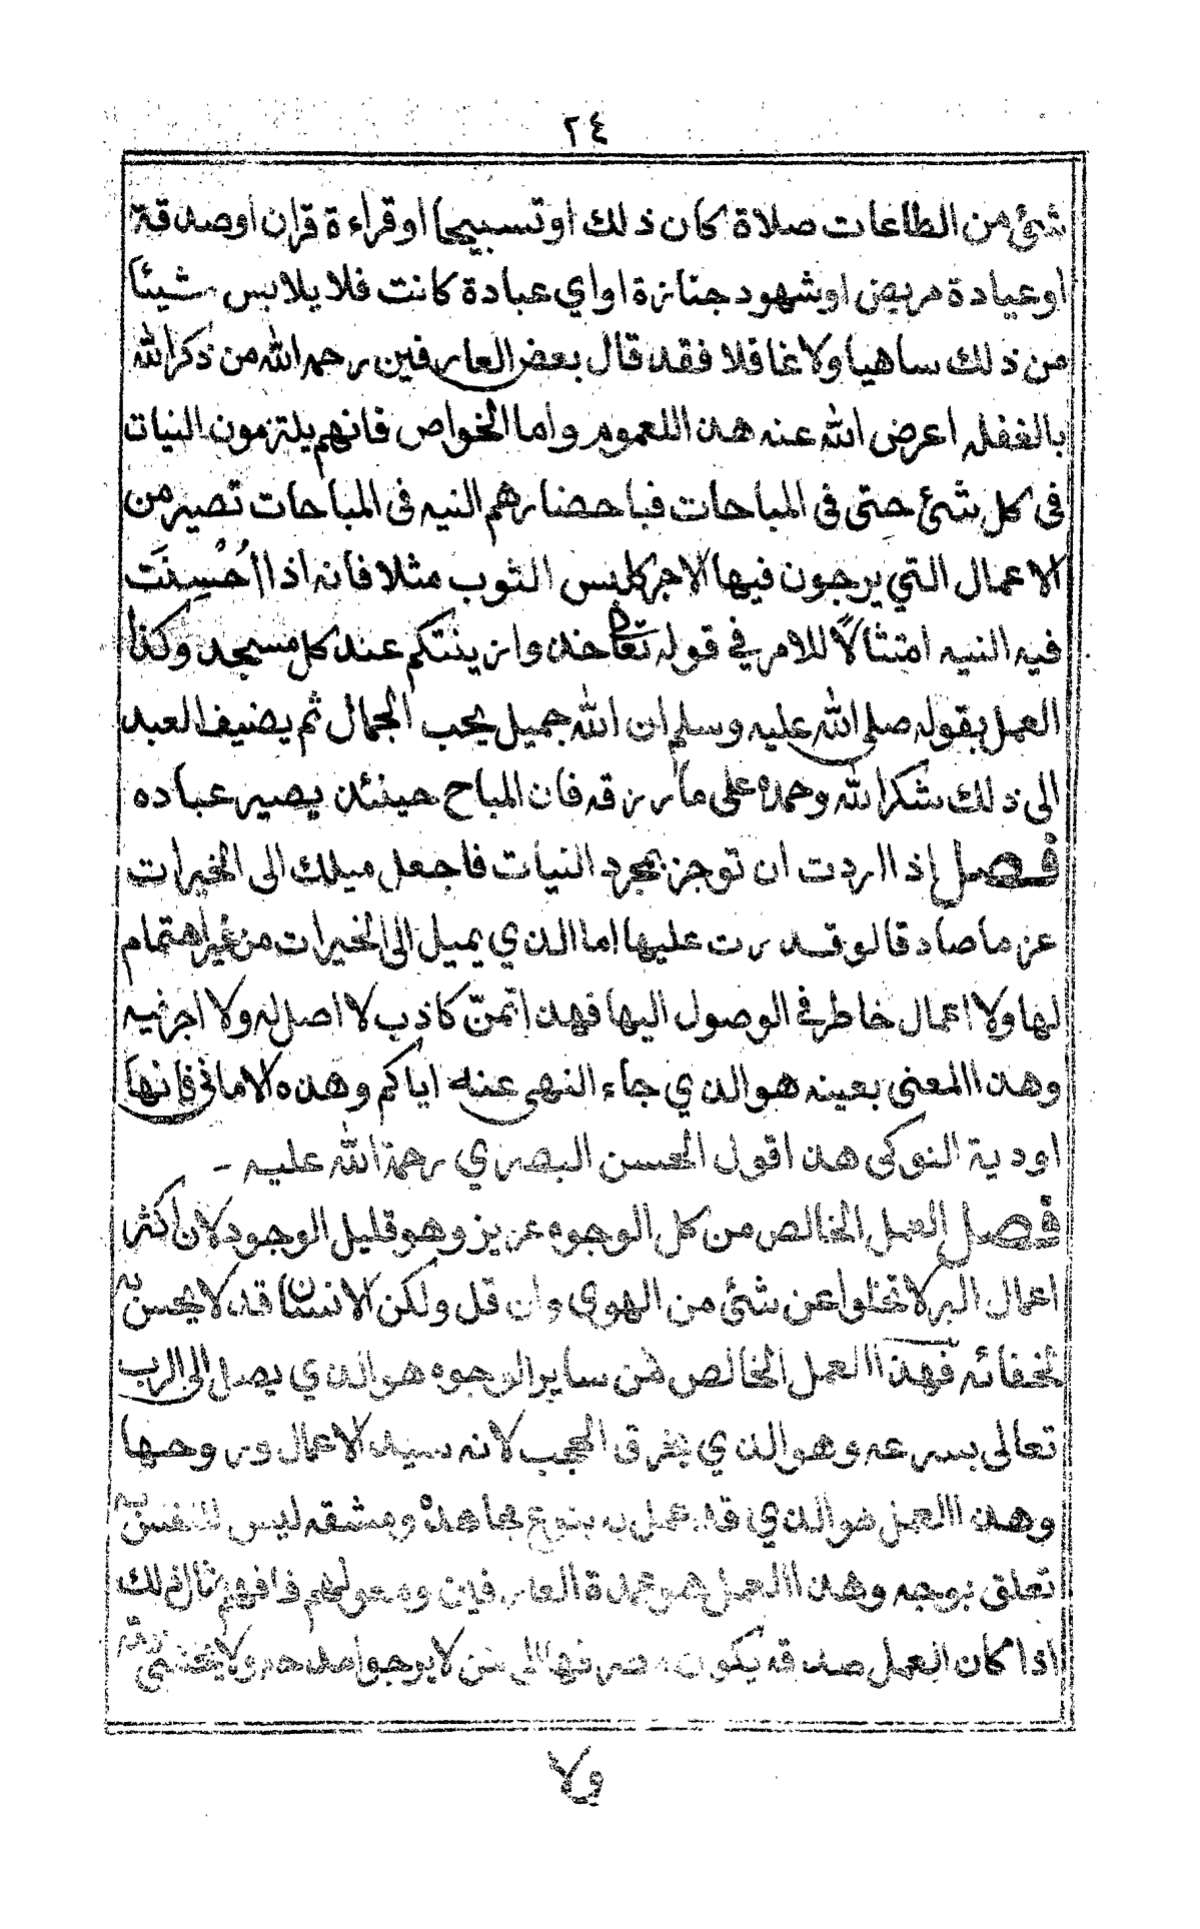 ٢٤
شئ من الطاعات صلاة كان ذلك او تسبيحا او قراءة قران او صدقة
او عيادة مريض او شهود جنازة او اي عبادة كانت فلا يلابس شيئا
من ذلك ساهيا ولا غافلا فقد قال بعض العارفين رحمه الله من ذكر الله
بالغفله اعرض الله عنه هذا للعموم واما الخواص فانهم يلتزمون النيات
فى كل شئ حتى فى المباحات فباحضارهم النيه فى المباحات تصير من
الاعمال التي يرجون فيها الاجر كلبس الثوب مثلا فانه اذا احُسِنَت
فيه النيه امتثالًا للامر في قوله تعالى خذوا زينتكم عند كل مسجد وكذا
العمل بقوله صلى الله عليه وسلم ان الله جميل يحب الجمال ثم يضيف العبد
الى ذلك شكرا لله وحمده على ما رزقه فان المباح حينئذ يصير عباده
فصل إذا اردت ان توجز بمجرد النيات فاجعل ميلك الى الخيرات
عزما صادقا لو قدرت عليها اما الذي يميل الى الخيرات من غير اهتمام
لها ولا اعمال خاطر في الوصول اليها فهذا تمنّ كاذب لا اصل له ولا اجر فيه
وهذا المعنى بعينه هو الذي جاء النهى عنه اياكم وهذه الامانى فإنها
اودية النوكى هذا قول الحسن البصري رحمة الله عليه -
فصل العمل الخالص من كل الوجوه عزيز وهو قليل الوجود لان اكثر
اعمال البر لا تخلوا عن شئ من الهوي وان قل ولكن الانسان قد لا يحس به
لخفائه فهذا العمل الخالص من ساير الوجوه هو الذي يصل الى الرب
تعالى بسرعه وهو الذي يخرق الحجب لانه سيد الاعمال وروحها
وهذا العمل هو الذي قد عمل به بنوع مجاهدة ومشقه ليس للنفس به
تعلق بوجه وهذا العمل هو عمدة العارفين ومعولهم فافهم مثال ذلك
اذا كان العمل صدقه يكون صرفها الى من لا يرجوا مدحه ولا يخشى
ولا